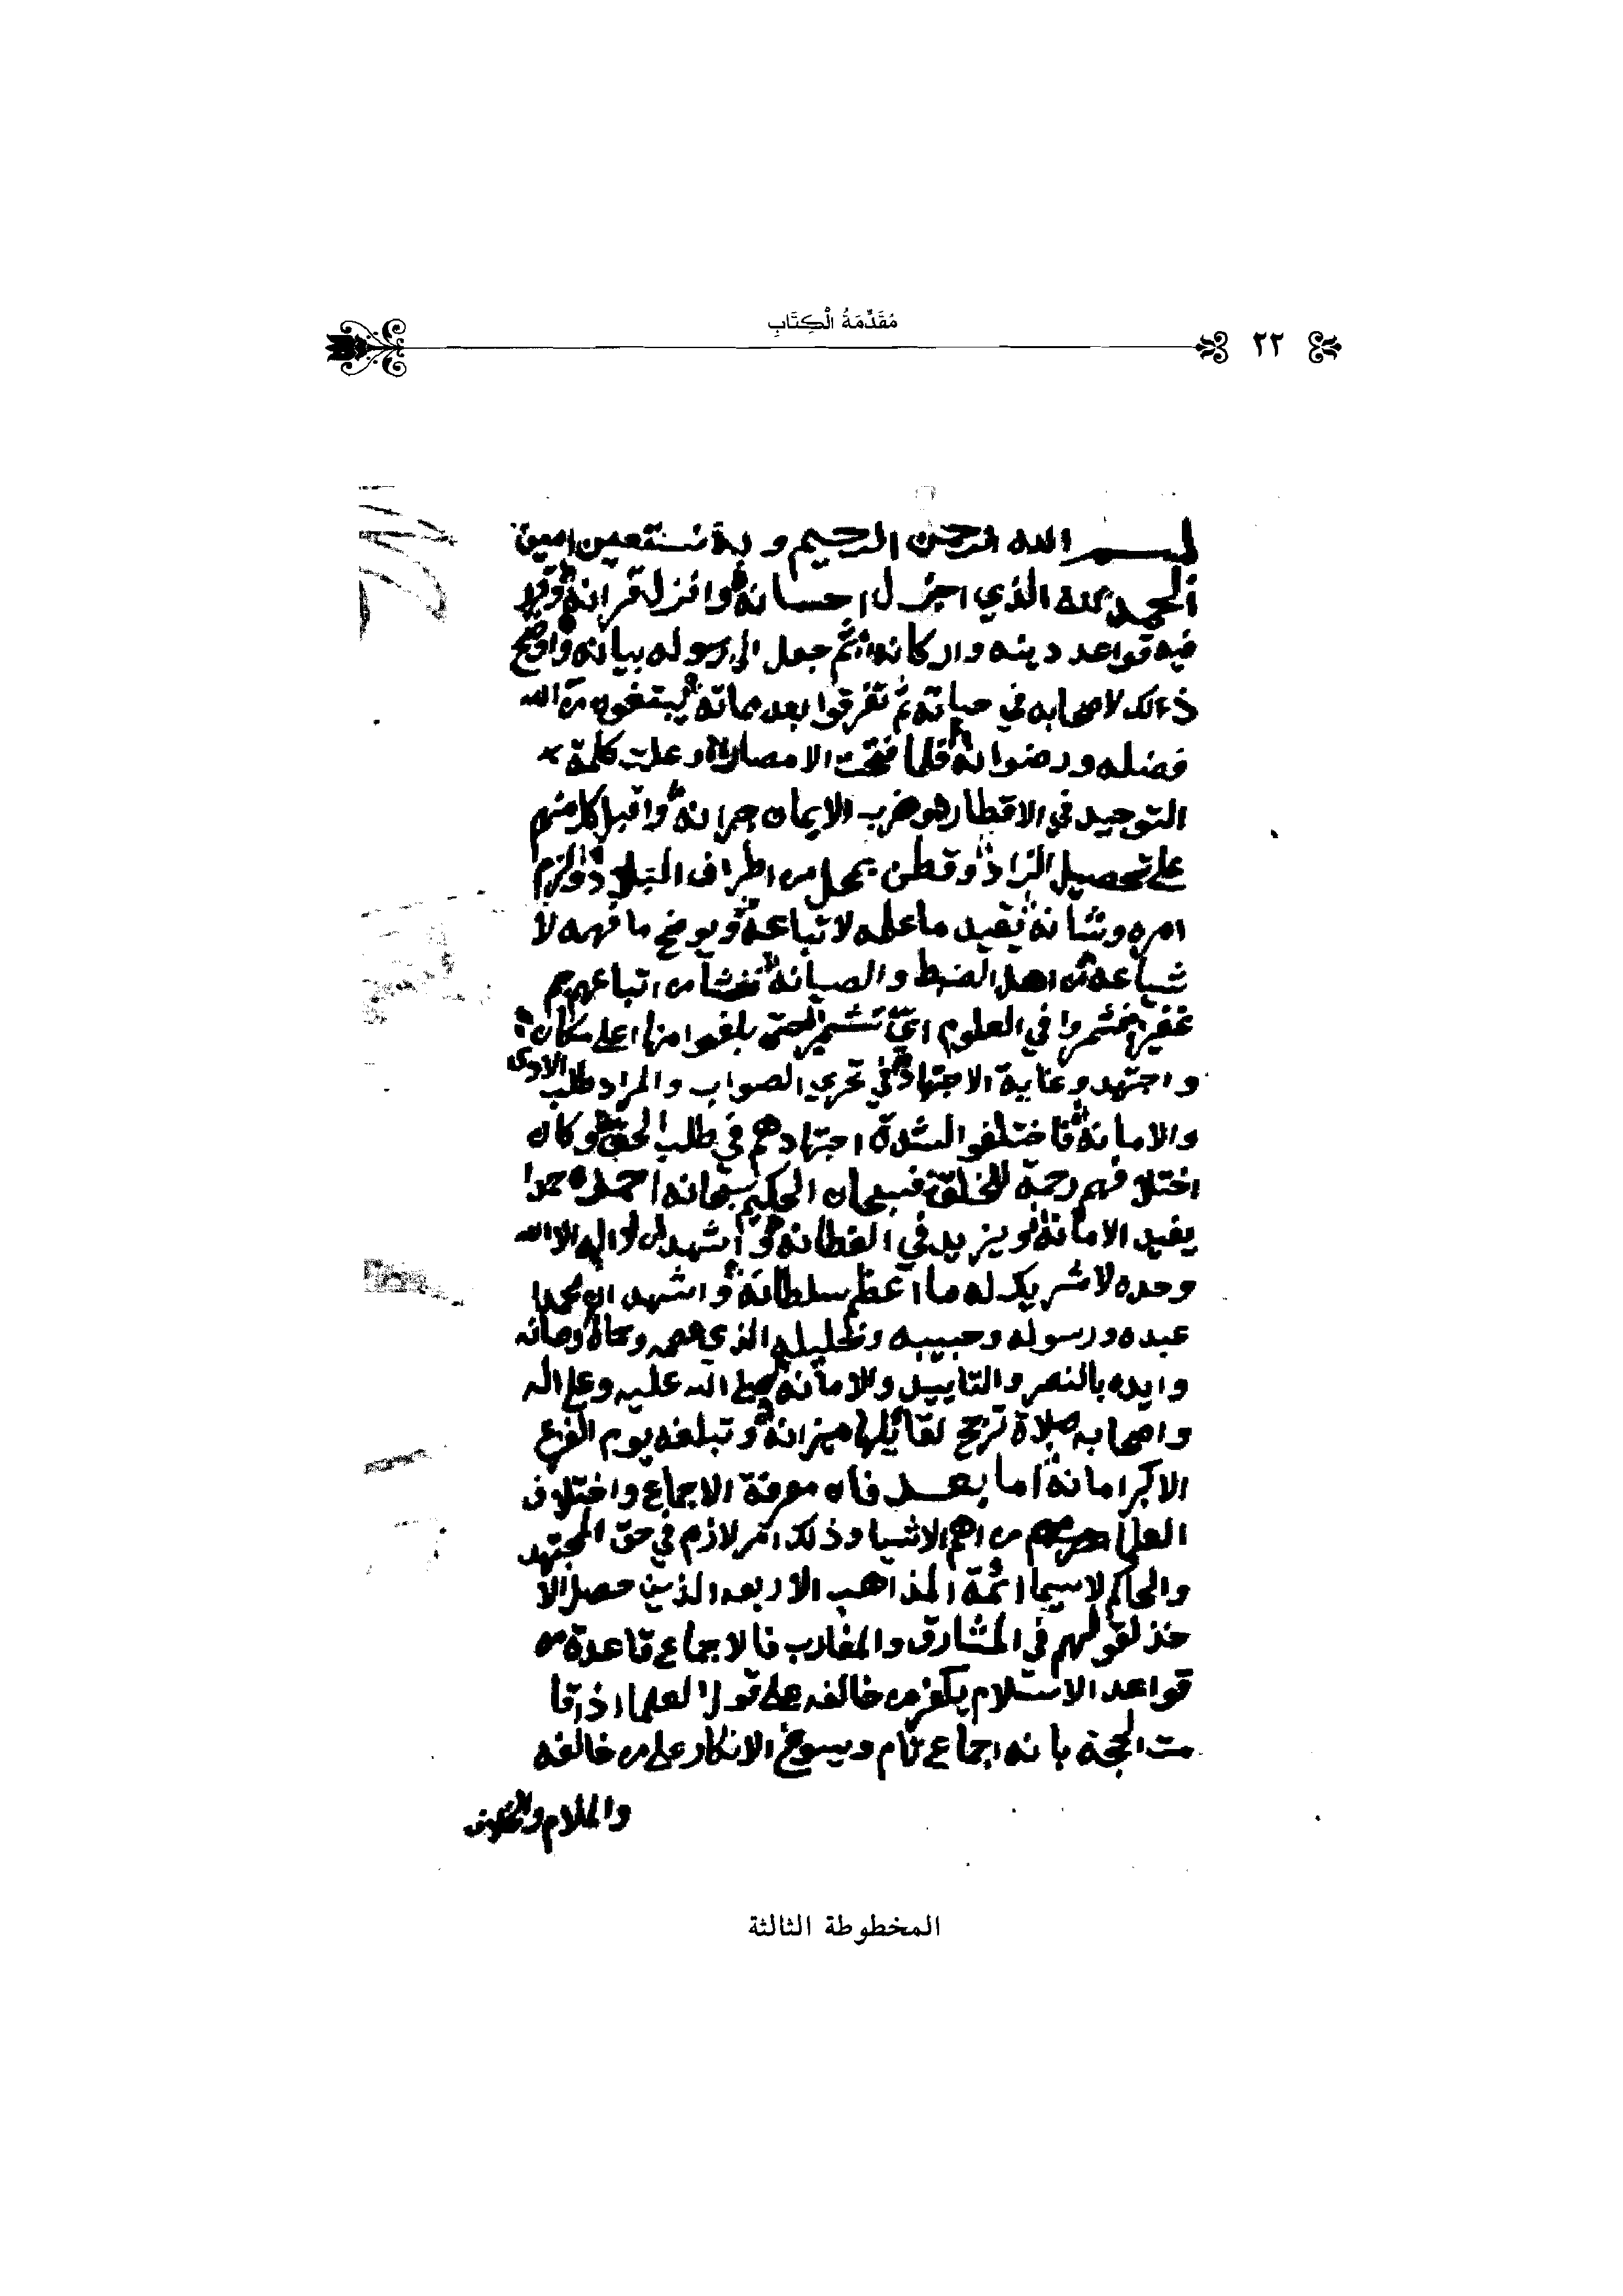 مُقَدِّمَةُ الْكِتَابِ
٢٢
بسم الله الرحمن الرحيم وبه نستعين امين
الحمد لله الذي اجزل احسانه وانزل قرانه
فيه قواعد دينه واركانه ثم جعل الى رسوله بيانه واوضح
ذلك لاصحابه في حياته ثم تفرقوا بعد مماته يبتغون من الله
فضله ورضوانه فلما فتحت الامصار وعلت كلمة
التوحيد في الاقطار وضرب الايمان جرانه واقبل كل منهم
على تحصيل الزاد وقطن بمحل من اطراف البلاد ولزم
امره وشانه يفيد ما علمه لاتباعه ويوضح ما فهمه لا
شياعه من اهل الضبط والصيانه فنشا من اتباعهم جم
غفير فشمروا في العلوم اي تشمير حتى بلغوا منها اعلى مكان
واجتهدو غاية الاجتهاد في تحري الصواب والمراد طلب
والامانه فاختلفوا لشدة اجتهادهم في طلب الحق وكان
اختلافهم رحمة للخلق فسبحان الحكيم سبحانه احمده حمدا
يفيد الامانه ويزيد في الفطانه واشهد ان لا اله الا الله
وحده لا شريك له ما اعظم سلطانه واشهد ان محمدا
عبده ورسوله وحبيبه وخليله الذي عصمه وحماه وصانه
وايده بالنصر والتاييد والامانه صلى الله عليه وعلى اله
واصحابه صلاة ترجح لقائلها ميزانه وتبلغه يوم الفزع
الاكبر امانه اما بعد فان معرفة الاجماع واختلاف
العلما من اهم الاشيا وذلك امر لازم في حق المجتهد
والحاكم لا سيما ائمة المذاهب الاربعه الذين حصل الا
خذ لقولهم في المشارق والمغارب فالاجماع قاعدة من
قواعد الاسلام يكفر من خالفه على قول العلما اذا قا
مت الحجة بانه اجماع تام ويسوغ الانكار على من خالفه
والملام
المخطوطة الثالثة